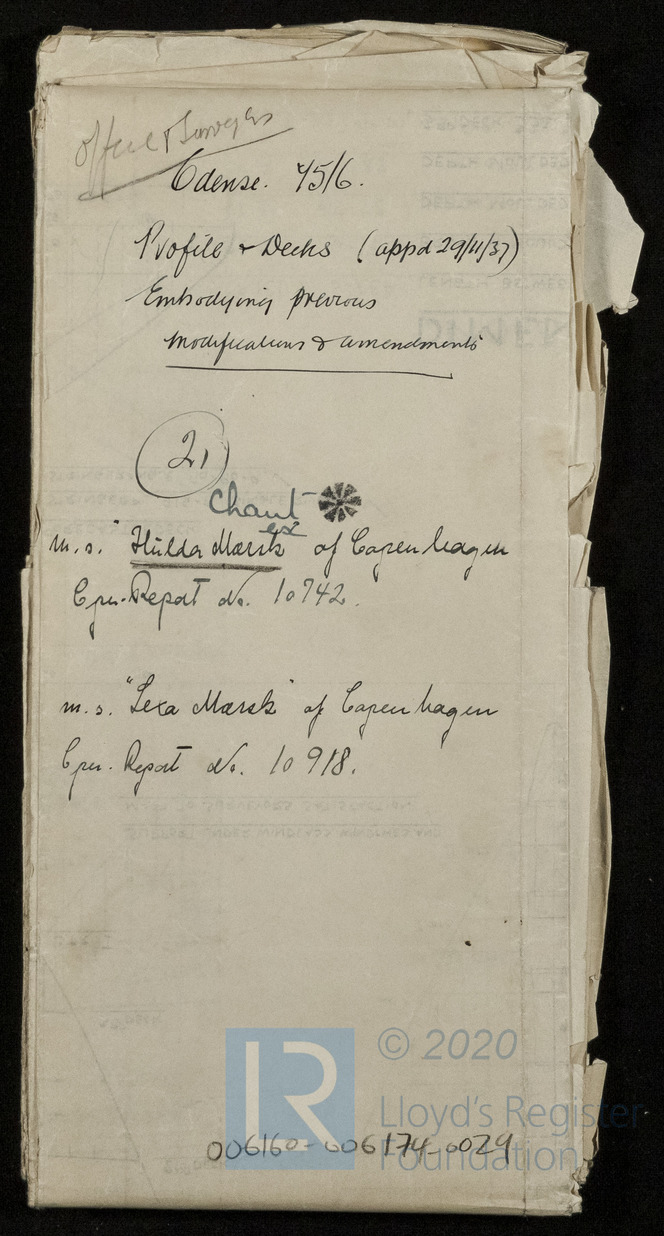 Odense. 75/6.
Profile & Decks (appd 29/11/37)
Embodying previous
Modifications & amendments
21
Chant
ex
m.s. "Hulda Mærsk" of Copenhagen
Cpn. Report No. 10742.
m.s. "Lexa Mærsk" of Copenhagen
Cpn. Report No. 10918.
© 2020
LR
Lloyd's Register
Foundation
006160-006174-0029